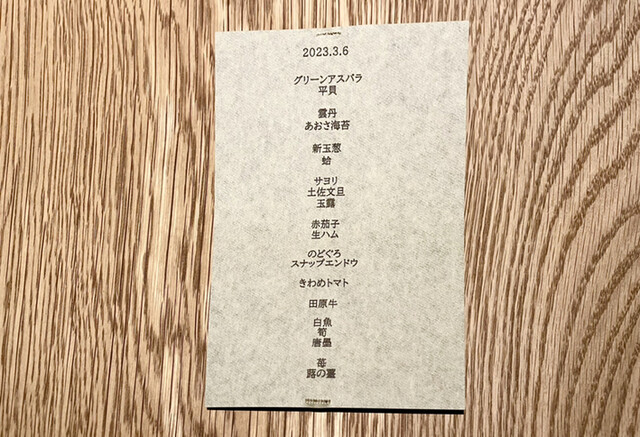 2023.3.6
グリーンアスパラ
平貝
雲丹
あおさ海苔
新玉葱
蛤
サヨリ
土佐文旦
玉露
赤茄子
生ハム
のどぐろ
スナップエンドウ
きわめトマト
田原牛
白魚
筍
唐墨
苺
蕗の薹